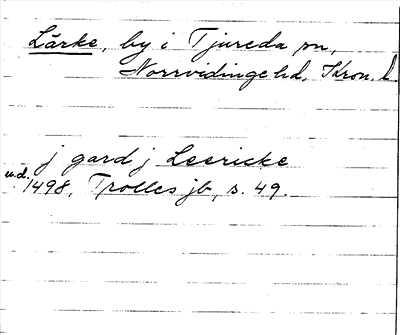 Lärke, by i Tjureda sn,
Norrvidinge hd, Kron. l
j gard j Leericke
u.d. 1498, Trolles jb, s. 49.